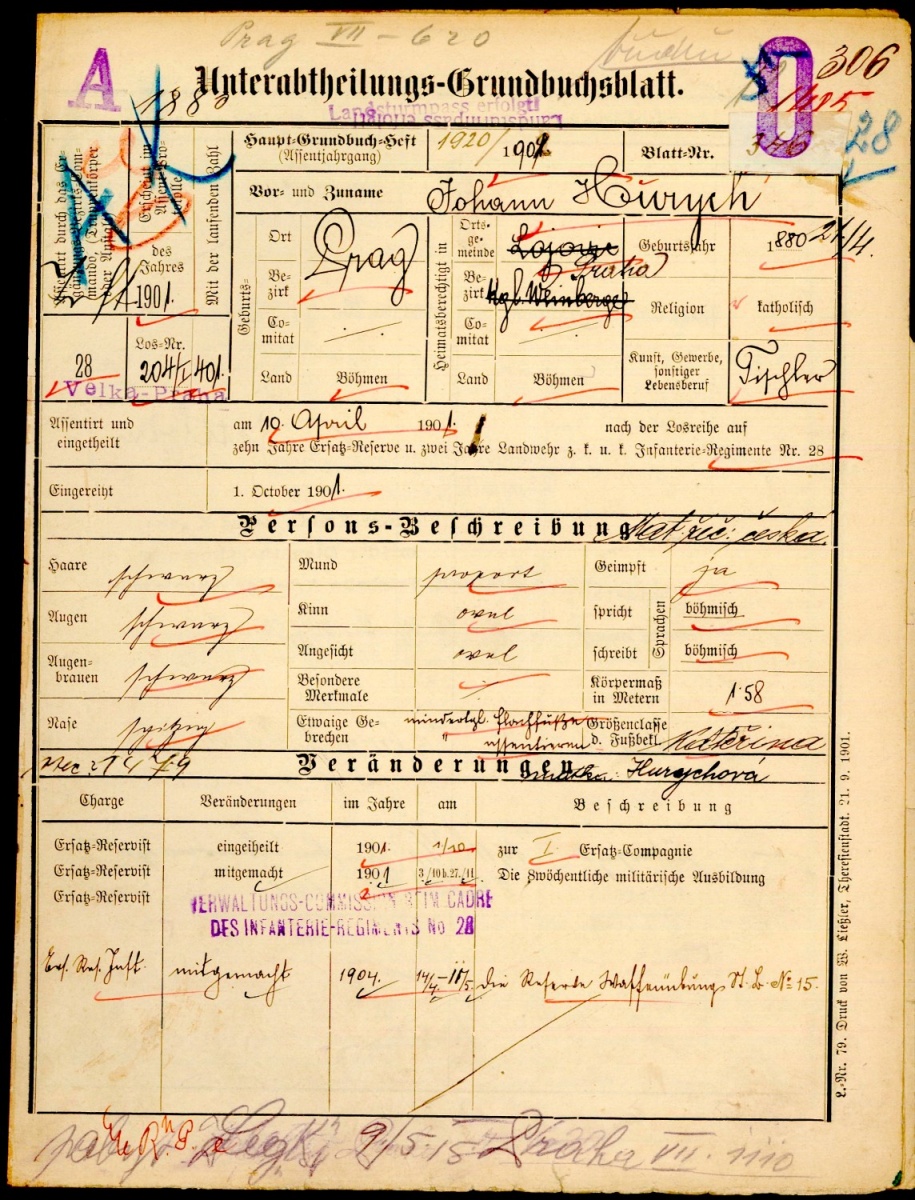 Prag VII - 620
A
O
306
Unterabtheilungs-Grundbuchsblatt.
1880
1485
Landsturmpass erfolgt!
28
Haupt-Grundbuch-Heft
(Assentjahrgang)
1920/
1901
Blatt-Nr.
Vor- und Zuname
Johann Hurych
Erscheint in
des
Jahres
1901.
Mit der laufenden Zahl
Geburts-
Ort
Prag
Bezirk
Comitat
Land
Böhmen
Heimatsberechtigt in
Ortsgemeinde
Praha
Bezirk
Kgl. Weinberge
Comitat
Land
Böhmen
Geburtsjahr
1880 21/4.
Religion
katholisch
Kunst, Gewerbe, sonstiger Lebensberuf
Tischler
28
Los-Nr.
204/I 401.
Velká-Praha
Assentirt und eingetheilt
am 10. April 1901. nach der Losreihe auf
zehn Jahre Ersatz-Reserve u. zwei Jahre Landwehr z. k. u. k. Infanterie-Regimente Nr. 28
Eingereiht
1. October 1901.
Persons-Beschreibung
Mat. řeč: česká.
Haare
schwarz
Mund
proport
Geimpft
ja
Augen
schwarz
Kinn
oval
spricht
Sprachen
böhmisch
Augenbrauen
schwarz
Angesicht
oval
schreibt
böhmisch
Besondere Merkmale
Körpermaß in Metern
1·58
Nase
spitzig
Etwaige Gebrechen
mindertgl. Plachfüße
assentieren
Größenclasse d. Fußbekl.
Kateřina
Veränderungen
matka: Hurychová
Charge
Veränderungen
im Jahre
am
Beschreibung
Ersatz-Reservist eingeiheilt 1901. 1/10. zur I Ersatz-Compagnie
Ersatz-Reservist mitgemacht 1901 3./10 b. 27./11 Die 8wöchentliche militärische Ausbildung
Ersatz-Reservist
VERWALTUNGS-COMMISSION BEIM CADRE
DES INFANTERIE-REGIMENTS No 28
Ers. Res. Inft. mitgemacht 1904. 14/4-11/5 die Reserve Waffenübung St. B. № 15.
L.-Nr. 79. Druck von W. Ließler, Theresienstadt. 21. 9. 1901.
9/5 15 Praha VII. 1110